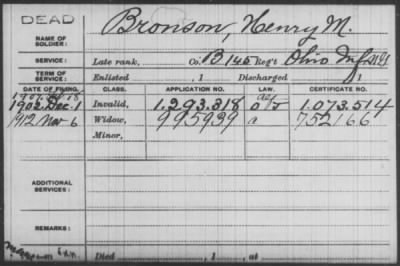 DEAD
Bronson, Henry M.
NAME OF
SOLDIER:
SERVICE: Late rank, Co. B 145 Reg't Ohio Inf
TERM OF
SERVICE: Enlisted , 1 Discharged , 1
DATE OF FILING. CLASS. APPLICATION NO. LAW. CERTIFICATE NO.
1902 Dec. 1 Invalid, 1.293.818 1.073.514
1912 Nov 6 Widow, 995939 a 752166
Minor,
ADDITIONAL
SERVICES:
REMARKS:
Died , 1 , at